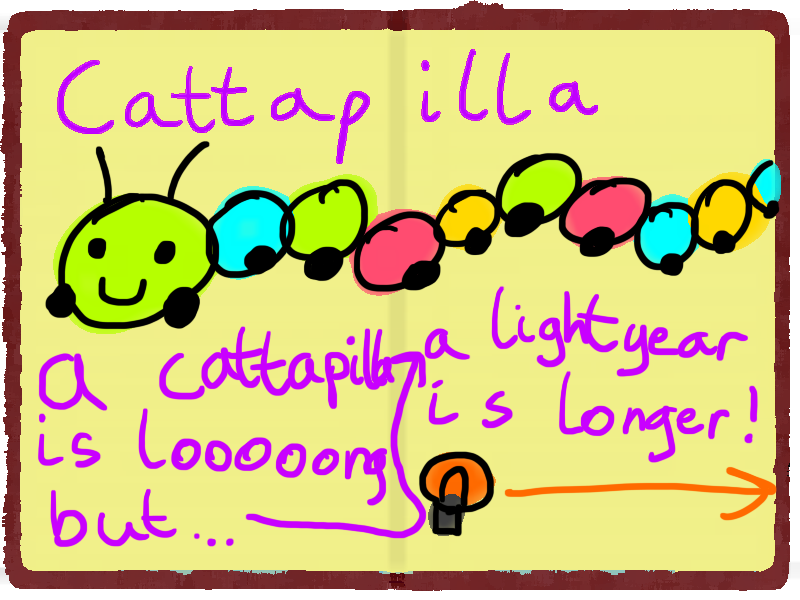 Cattapilla
a cattapilla
is looooong
but...
a lightyear
is longer!